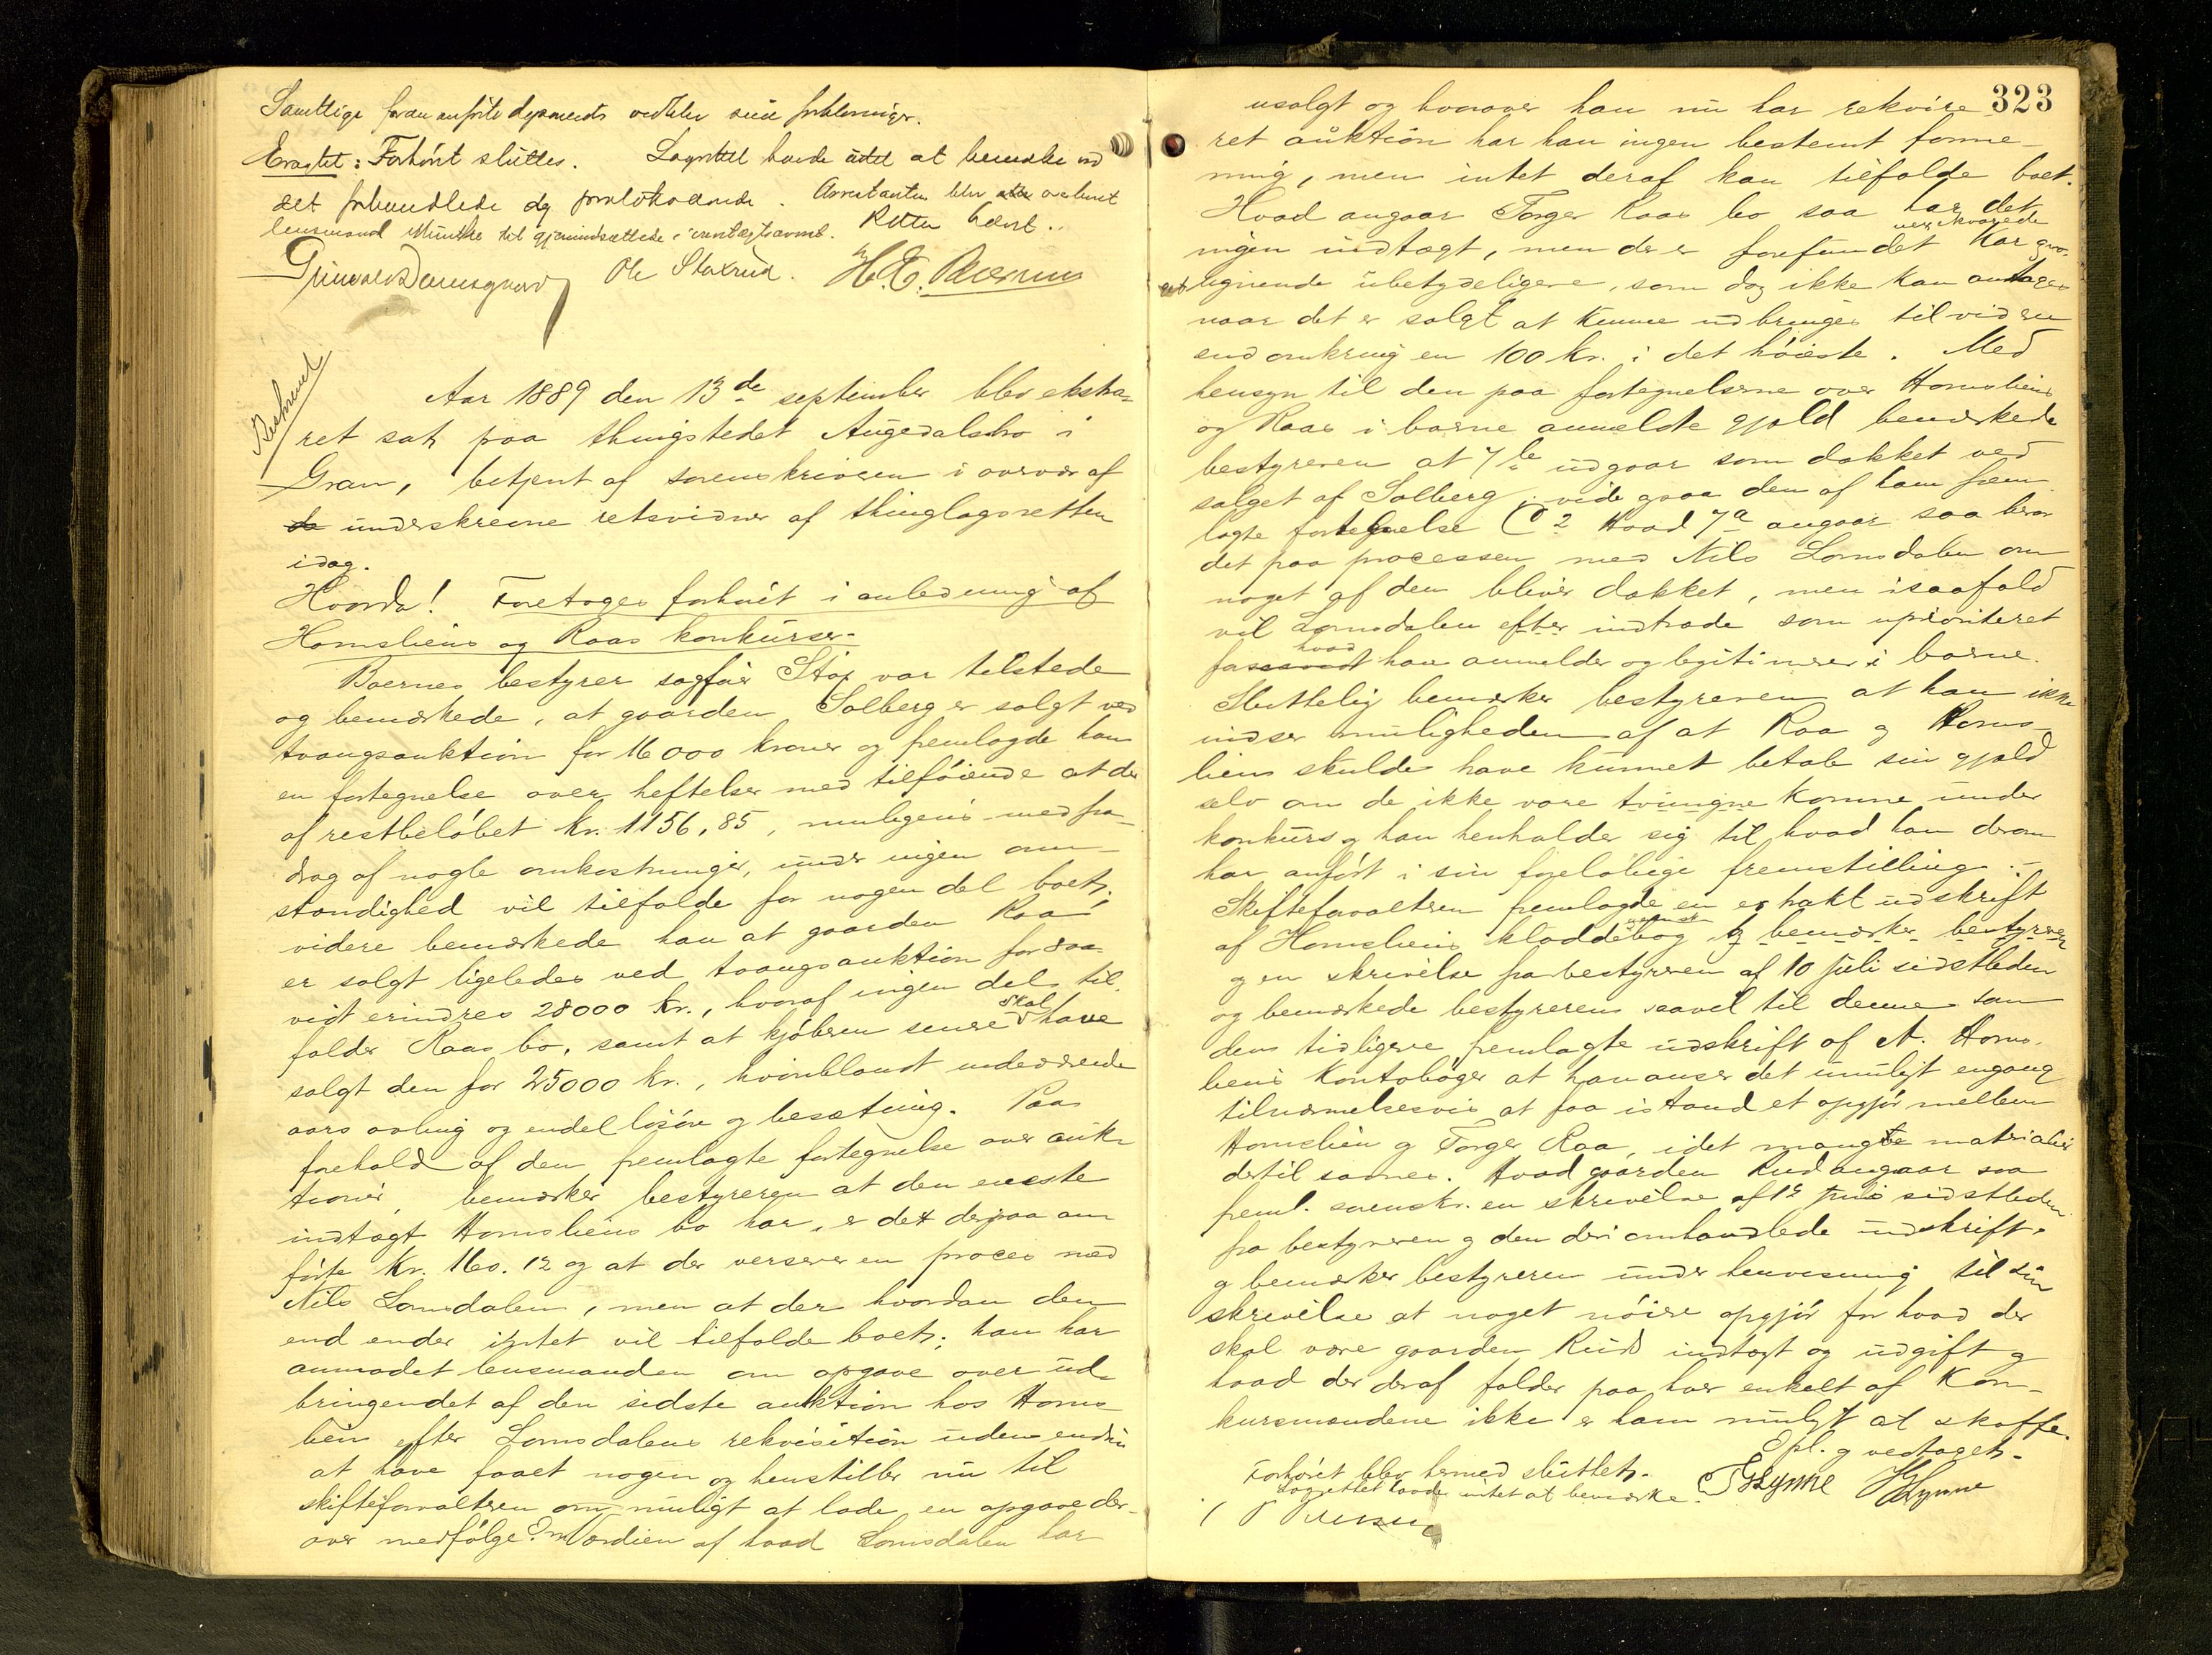 Samtlige foran anførte deponents vedblev sine forklaringer.
Eragtet: Forhøret sluttes. Lagrettet havde intet at bemærke ved
det forhandlede og protokollerede. Arrestanten blev overleveret
lensmand Munthe til gjenindsættelse i varetægtsarrest. Retten hævet.
Ole Staxrud.
Beskrevet
Aar 1889 den 13de september blev ekstra-
ret sat paa thingstedet Augedalsbro i
Gran, betjent af sorenskriveren i overvær af
underskrevne retsvidner af thinglagsretten
idag.
Hvorda! Foretoges forhør i anledning af
Hornsliens og Raas konkurser.
Boernes bestyrer sagfør Stax var tilstede
og bemærkede, at gaarden Solberg er solgt ved
tvangsauktion for 16000 kroner og fremlagde han
en fortegnelse over heftelser med tilføiende at der
af restbeløbet kr. 1156,85, muligens med fra-
drag af nogle omkostninger, under ingen om-
stændighed vil tilfalde for nogen del boet;
videre bemærkede han at gaarden Raa
er solgt ligeledes ved tvangsauktion for saa-
vidt erindres 28000 kr., hvoraf ingen del til-
falder Raas bo, samt at kjøberen senere skal have
solgt den for 25000 kr., hvoriblandt indeværende
aars avling og endel løsøre og besætning. Paa
forehold af den fremlagte fortegnelse over auk-
tioner, bemærker bestyreren at den eneste
indtægt Hornsliens bo har, er det derpaa an-
førte kr. 160.12 og at der verserer en proces med
Nils Lomsdalen, men at der hvordan den
end ender intet vil tilfalde boet; han har
anmodet lensmanden om opgave over ud-
bringendet af den sidste auktion hos Horns-
lien efter Lomsdalens rekvisition uden endnu
at have faaet nogen og henstiller nu til
skifteforvalteren om muligt at lade en opgave der-
over medfølge. Om Værdien af hvad Lomsdalen har
323
usolgt og hvorover han nu har rekvire-
ret auktion har han ingen bestemt forme-
ning, men intet deraf kan tilfalde boet.
Hvad angaar Torger Raas bo saa har det
ingen indtægt, men der er forefundet
lignende ubetydeligere, som dog ikke kan antages
naar det er solgt at kunne udbringes til videre
end omkring en 100 kr. i det høieste. Med
hensyn til den paa fortegnelserne over Hornsliens
og Raas i boerne anmeldte gjæld bemærkede
bestyreren at 7 udgaar som dækket ved
salget af Solberg, vide ogsaa den af ham frem-
lagte fortegnelse. Hvad 7a angaar saa beror
det paa processen med Nils Lomsdalen om
noget af den bliver dækket, men isaafald
vil Lomsdalen efter indtræde som uprioriteret
hvad han anmelder og legitimerer i boerne.
Sluttelig bemærker bestyreren at han ikke
indser muligheden af at Raa og Horns-
lien skulde have kunnet betale sin gjæld
selv om de ikke vare tvungne komne under
konkurs og han henholder sig til hvad han derom
har anført i sin foreløbige fremstilling.
Skifteforvalteren fremlagde en ekstrakt udskrift
af Hornsliens kladdebog og bemærker bestyreren
og en skrivelse fra bestyreren af 10 juli sidstleden
og bemærkede bestyreren saavel til denne som
den tidligere fremlagte udskrift af A. Horns-
liens kontobøger at han anser det umuligt engang
tilnærmelsesvis at faa istand et opgjør mellem
Hornslien og Torger Raa, idet mangt materiale
dertil savnes. Hvad gaarden Rud angaar saa
freml. sorenskr. en skrivelse af 12 juni sidstleden
fra bestyreren og den deri omhandlede udskrift.
og bemærker bestyreren under henvisning til sin
skrivelse at noget nøiere opgjør for hvad der
skal være gaarden Ruds indtægt og udgift og
hvad der deraf falder paa hver enkelt af kon-
kursmændene ikke er ham muligt at skaffe.
Opl. og vedtaget.
Forhøret blev hermed sluttet.
Lagrettet havde intet at bemærke.
Lynne Lynne